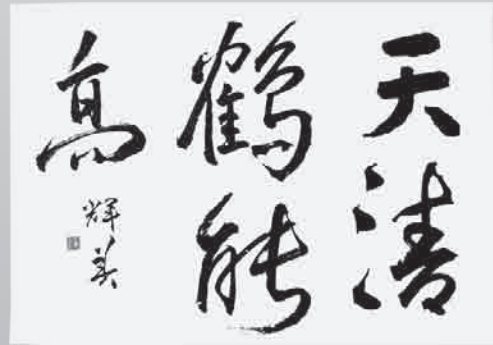 天清
鶴能
高
輝美